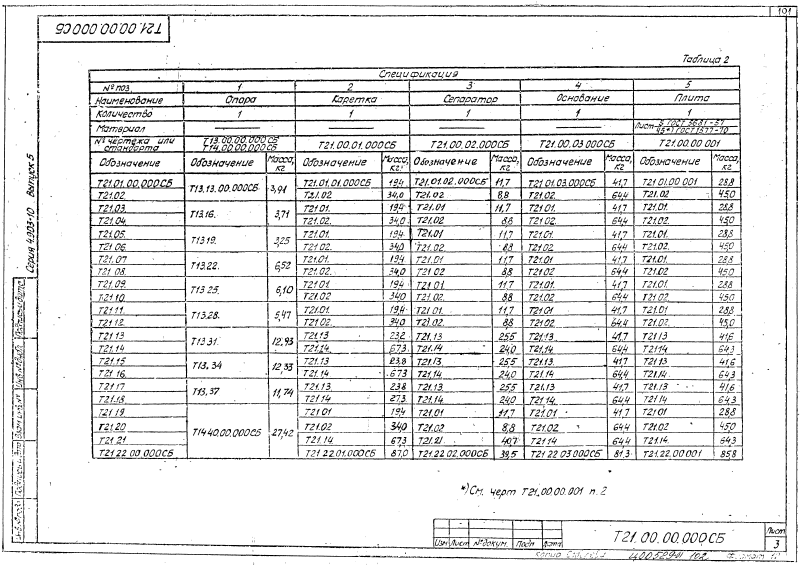 101
Т21.00.00.000СБ
Таблица 2
Спецификация
№ поз. 1 2 3 4 5
Наименование Опора Каретка Сепаратор Основание Плита
Количество 1 1 1 1 1
Материал Лист
№ чертежа или стандарта Т13.00.00.000СБ Т14.00.00.000СБ Т21.00.01.000СБ Т21.00.02.000СБ Т21.00.03.000СБ Т21.00.00.001
Обозначение Обозначение Масса, кг Обозначение Масса, кг Обозначение Масса, кг Обозначение Масса, кг Обозначение Масса, кг
Т21.01.00.000СБ Т13.13.00.000СБ 3,91 Т21.01.01.000СБ 19,4 Т21.01.02.000СБ 11,7 Т21.01.03.000СБ 41,7 Т21.01.00.001 28,8
Т21.02. Т21.02 34,0 Т21.02 8,8 Т21.02. 64,4 Т21.02. 45,0
Т21.03. Т13.16. 3,71 Т21.01. 19,4 Т21.01 11,7 Т21.01. 41,7 Т21.01. 28,8
Т21.04. Т21.02. 34,0 Т21.02 8,8 Т21.02. 64,4 Т21.02. 45,0
Т21.05. Т13.19. 3,25 Т21.01. 19,4 Т21.01 11,7 Т21.01. 41,7 Т21.01. 28,8
Т21.06. Т21.02. 34,0 Т21.02. 8,8 Т21.02. 64,4 Т21.02. 45,0
Т21.07 Т13.22. 6,52 Т21.01. 19,4 Т21.01 11,7 Т21.01 41,7 Т21.01. 28,8
Т21.08. Т21.02. 34,0 Т21.02 8,8 Т21.02 64,4 Т21.02 45,0
Т21.09. Т13.25. 6,10 Т21.01. 19,4 Т21.01. 11,7 Т21.01. 41,7 Т21.01. 28,8
Т21.10. Т21.02 34,0 Т21.02 8,8 Т21.02. 64,4 Т21.02 45,0
Т21.11. Т13.28. 5,47 Т21.01. 19,4 Т21.01. 11,7 Т21.01. 41,7 Т21.01. 28,8
Т21.12 Т21.02. 34,0 Т21.02. 8,8 Т21.02. 64,4 Т21.02. 45,0
Т21.13 Т13.31. 12,93 Т21.13 23,2 Т21.13 25,5 Т21.13 41,7 Т21.13 41,6
Т21.14 Т21.14. 67,3 Т21.14 24,0 Т21.14. 64,4 Т21.14 64,3
Т21.15 Т13.34 12,33 Т21.13 23,8 Т21.13. 25,5 Т21.13. 41,7 Т21.13 41,6
Т21.16. Т21.14. 67,3 Т21.14. 24,0 Т21.14. 64,4 Т21.14. 64,3
Т21.17 Т13.37 11,74 Т21.13. 23,8 Т21.13. 25,5 Т21.13 41,7 Т21.13. 41,6
Т21.18 Т21.14 27,3 Т21.14 24,0 Т21.14. 64,4 Т21.14 64,3
Т21.19 Т14.40.00.000СБ 27,42 Т21.01 19,4 Т21.01 11,7 Т21.01. 41,7 Т21.01 28,8
Т21.20 Т21.02 34,0 Т21.02 8,8 Т21.02 64,4 Т21.02 45,0
Т21.21 Т21.14 67,3 Т21.21 40,7 Т21.14 64,4 Т21.14. 64,3
Т21.22.00.000СБ Т21.22.01.000СБ 87,0 Т21.22.02.000СБ 39,5 Т21.22.03.000СБ 81,3 Т21.22.00.001 85,8
*) См. черт Т21.00.00.001 п.2
Серия 4.903-10 Выпуск 5
Т21.00.00.000СБ
Лист
3
Изм Лист № докум. Подп Дата